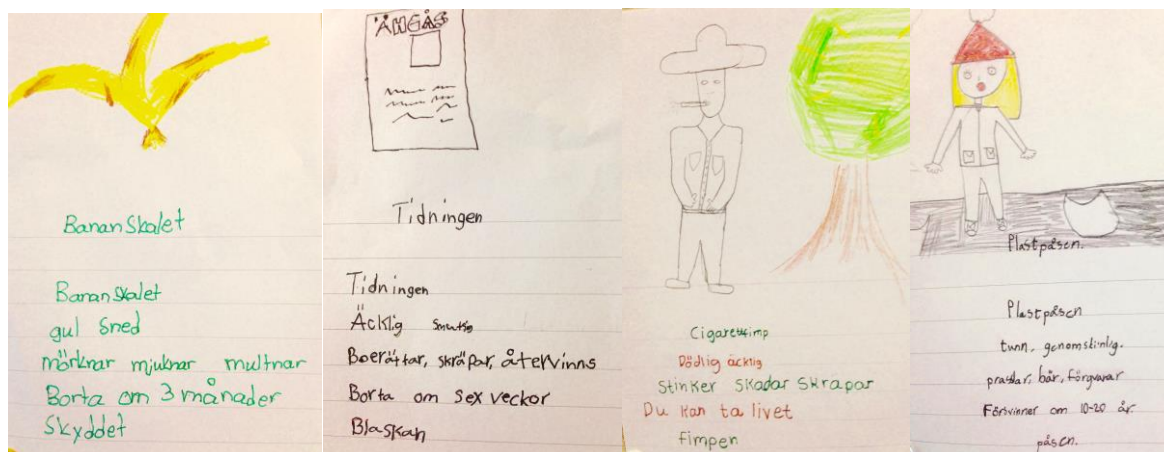 Banan Skalet
Banan Skalet
gul Sned
mörknar mjuknar multnar
Borta om 3 månader
Skyddet
ÄNGÅS
Tidningen
Tidningen
Äcklig
Boerättar, skräpar, återvinns
Borta om sex veckor
Blaskan
Cigarettfimp
Dödlig äcklig
Stinker Skadar Skrapar
Du kan ta livet
fimpen
Plastpåsen.
Plastpåsen
tunn, genomskinlig.
prasslar, bär, förgvarar
Försvinner om 10-20 år.
påsen.